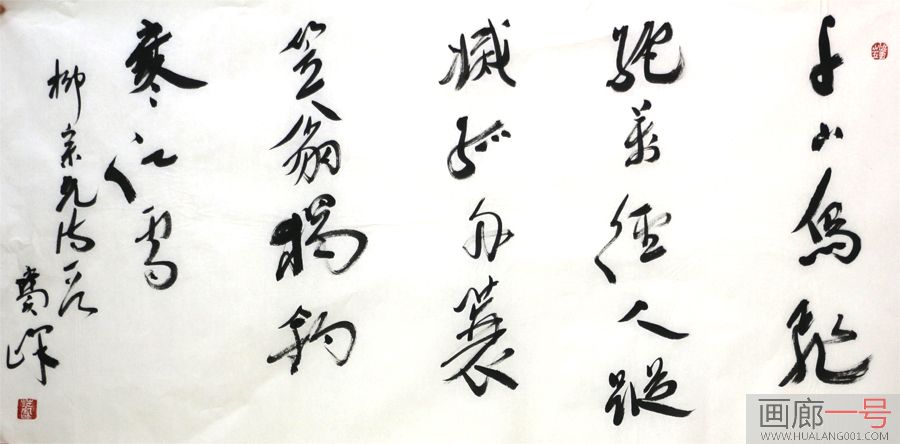 千山鳥飛
絕萬徑人蹤
滅孤舟蓑
笠翁獨釣
寒江雪
柳宗元詩一首
画廊一号
WWW.HUALANG001.COM